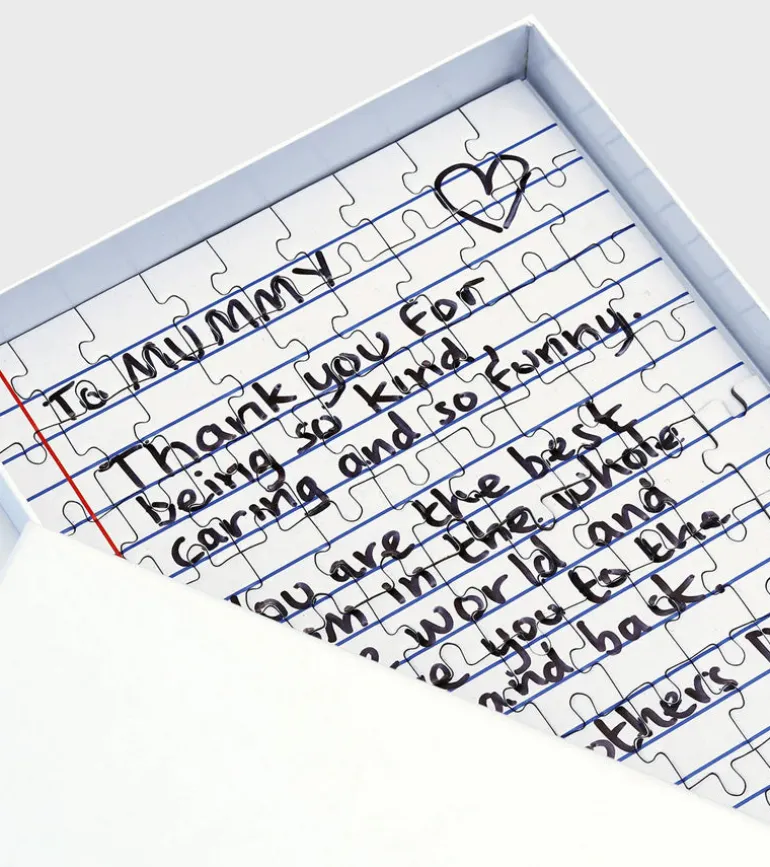 To MUMMY
Thank you for
being so kind,
caring and so funny.
are the best
in the whole
world and
you to the
and back.